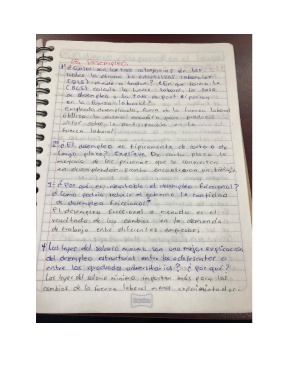 28. Desempleo
1¿Cuáles son las tres categorías en las
(BLS)
(BLS) calcula la fuerza laboral, la tasa
de desempleo y la tasa de participación
en la fuerza laboral?
empleado, desempleado, fuera de la fuerza laboral
fuerza laboral.
2¿El desempleo es típicamente de corto o de
largo plazo? Explique. De corto plazo la
mayoría de las personas que se convierten
en desempleados pronto encontrarán un trabajo
3¿Por qué es inevitable el desempleo friccional?
¿Cómo podría reducir el gobierno la cantidad
de desempleo friccional?
El desempleo friccional a menudo es el
resultado de los cambios en la demanda
de trabajo entre diferentes empresas.
4 Las leyes del salario mínimo son una mejor explicación
del desempleo estructural entre los adolescentes o
entre los graduados universitarios? ¿por qué?
Las leyes del salario mínimo importan más para los
cambios de la fuerza laboral menos experimentados